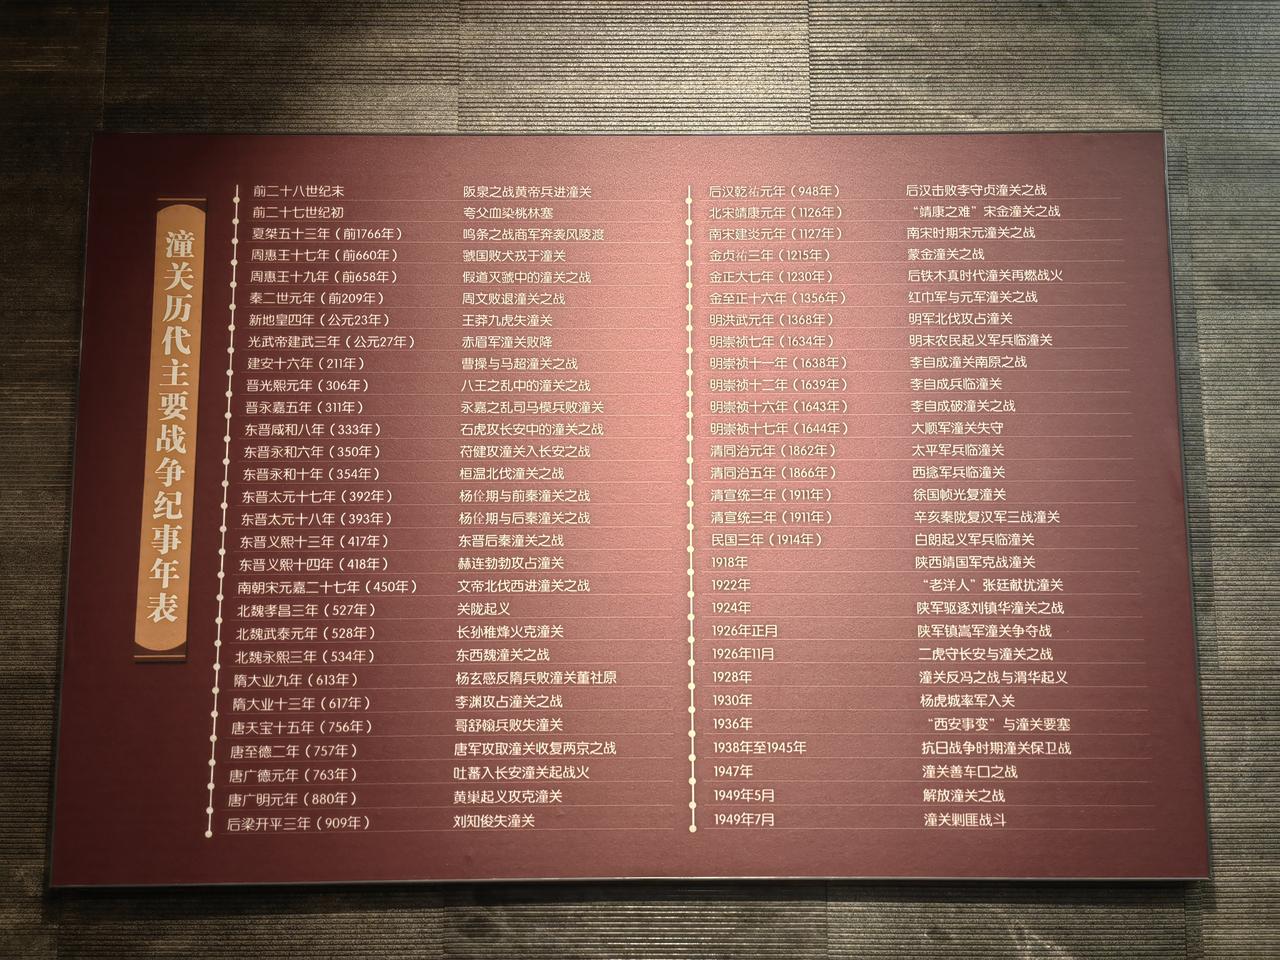 潼关历代主要战争纪事年表
前二十八世纪末 阪泉之战黄帝兵进潼关
前二十七世纪初 夸父血染桃林塞
夏桀五十三年（前1766年） 鸣条之战商军奔袭风陵渡
周惠王十七年（前660年） 虢国败犬戎于潼关
周惠王十九年（前658年） 假道灭虢中的潼关之战
秦二世元年（前209年） 周文败退潼关之战
新地皇四年（公元23年） 王莽九虎失潼关
光武帝建武三年（公元27年） 赤眉军潼关败降
建安十六年（211年） 曹操与马超潼关之战
晋光熙元年（306年） 八王之乱中的潼关之战
晋永嘉五年（311年） 永嘉之乱司马模兵败潼关
东晋咸和八年（333年） 石虎攻长安中的潼关之战
东晋永和六年（350年） 苻健攻潼关入长安之战
东晋永和十年（354年） 桓温北伐潼关之战
东晋太元十七年（392年） 杨佺期与前秦潼关之战
东晋太元十八年（393年） 杨佺期与后秦潼关之战
东晋义熙十三年（417年） 东晋后秦潼关之战
东晋义熙十四年（418年） 赫连勃勃攻占潼关
南朝宋元嘉二十七年（450年） 文帝北伐西进潼关之战
北魏孝昌三年（527年） 关陇起义
北魏武泰元年（528年） 长孙稚烽火克潼关
北魏永熙三年（534年） 东西魏潼关之战
隋大业九年（613年） 杨玄感反隋兵败潼关董社原
隋大业十三年（617年） 李渊攻占潼关之战
唐天宝十五年（756年） 哥舒翰兵败失潼关
唐至德二年（757年） 唐军攻取潼关收复两京之战
唐广德元年（763年） 吐蕃入长安潼关起战火
唐广明元年（880年） 黄巢起义攻克潼关
后梁开平三年（909年） 刘知俊失潼关
后汉乾祐元年（948年） 后汉击败李守贞潼关之战
北宋靖康元年（1126年） “靖康之难”宋金潼关之战
南宋建炎元年（1127年） 南宋时期宋元潼关之战
金贞祐三年（1215年） 蒙金潼关之战
金正大七年（1230年） 后铁木真时代潼关再燃战火
金至正十六年（1356年） 红巾军与元军潼关之战
明洪武元年（1368年） 明军北伐攻占潼关
明崇祯七年（1634年） 明末农民起义军兵临潼关
明崇祯十一年（1638年） 李自成潼关南原之战
明崇祯十二年（1639年） 李自成兵临潼关
明崇祯十六年（1643年） 李自成破潼关之战
明崇祯十七年（1644年） 大顺军潼关失守
清同治元年（1862年） 太平军兵临潼关
清同治五年（1866年） 西捻军兵临潼关
清宣统三年（1911年） 徐国帧光复潼关
清宣统三年（1911年） 辛亥秦陇复汉军三战潼关
民国三年（1914年） 白朗起义军兵临潼关
1918年 陕西靖国军克战潼关
1922年 “老洋人”张廷献扰潼关
1924年 陕军驱逐刘镇华潼关之战
1926年正月 陕军镇嵩军潼关争夺战
1926年11月 二虎守长安与潼关之战
1928年 潼关反冯之战与渭华起义
1930年 杨虎城率军入关
1936年 “西安事变”与潼关要塞
1938年至1945年 抗日战争时期潼关保卫战
1947年 潼关善车口之战
1949年5月 解放潼关之战
1949年7月 潼关剿匪战斗